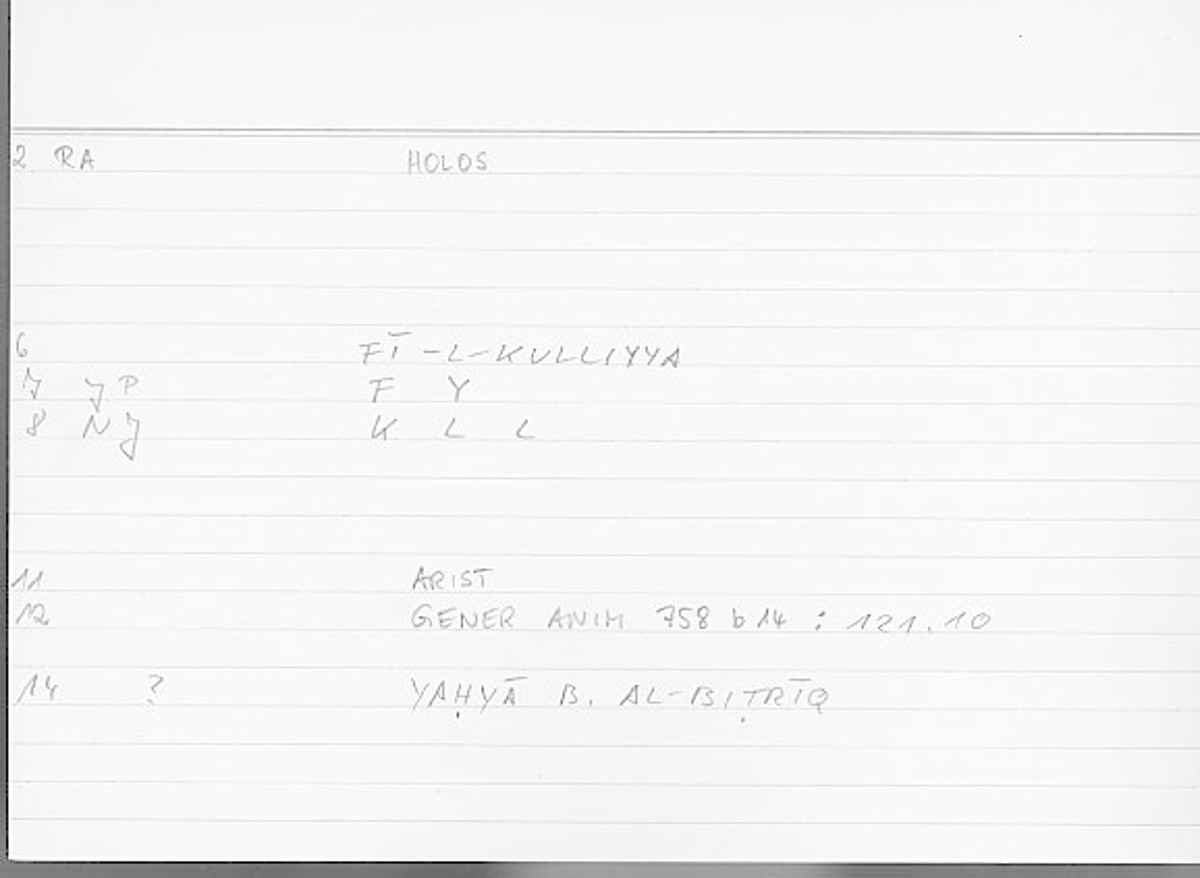 2 RA HOLOS
6 FĪ-L-KULLIYYA
7 JP F Y
8 NJ K L L
11 ARIST
12 GENER ANIM 758 b 14 : 121.10
14 ? YAḤYĀ B. AL-BIṬRĪQ